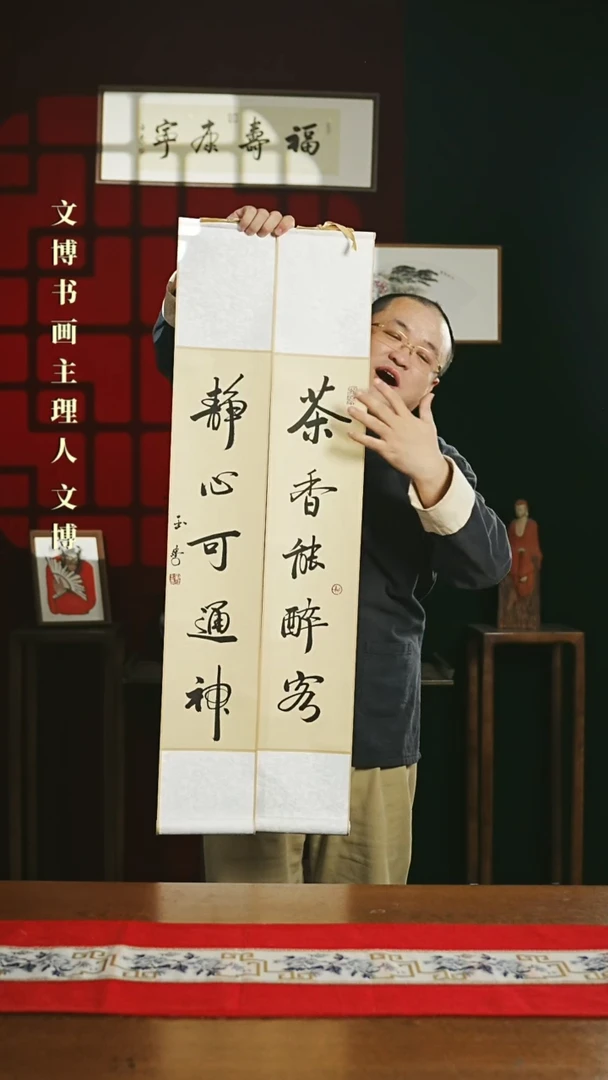 福壽康寧
文博书画主理人 文博
茶香能醉客
靜心可通神